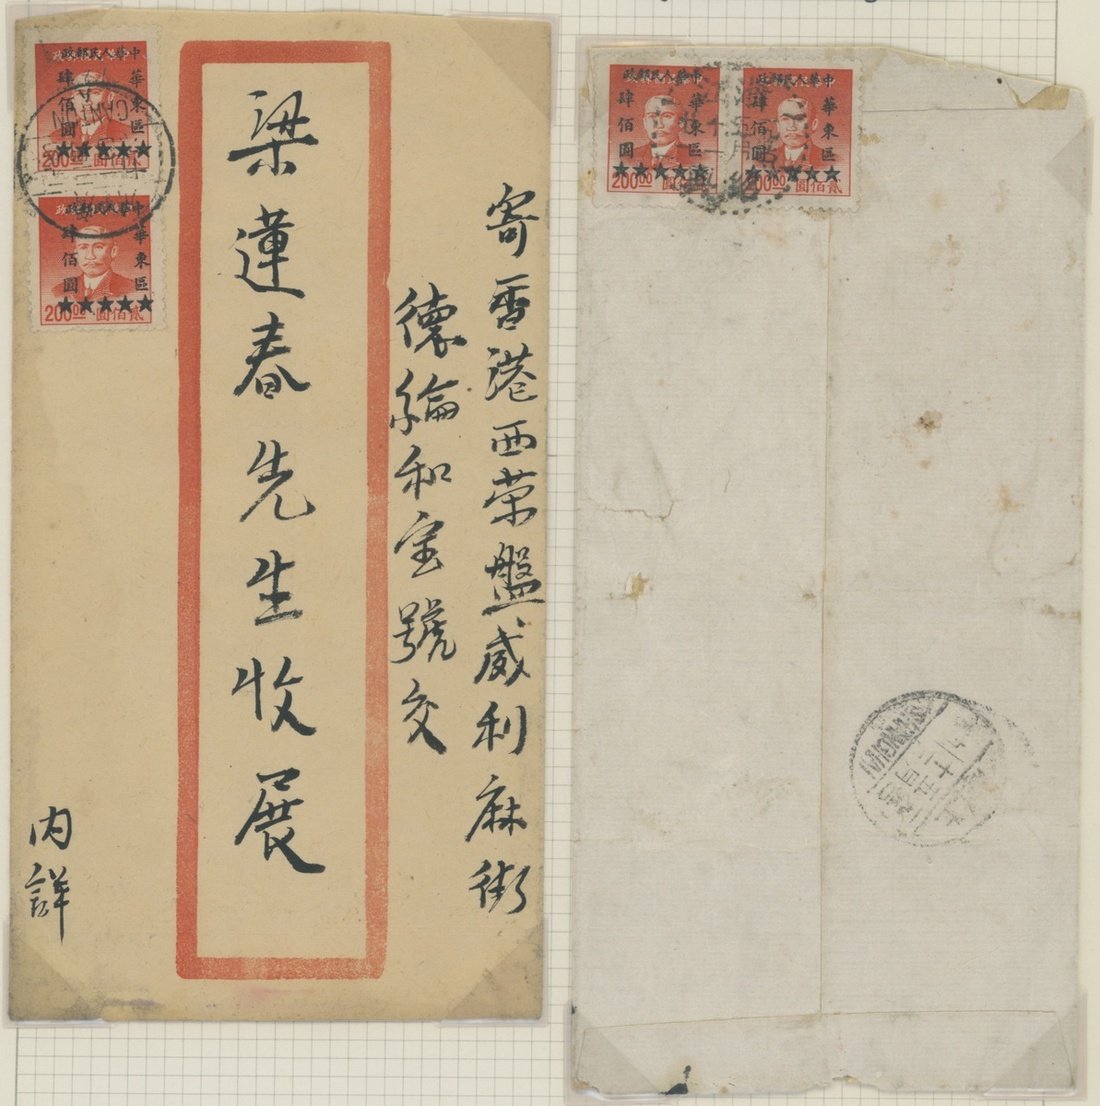 寄香港西荣盤威利麻街
德綸和宝號交
梁蓮春先生收展
内詳
中華人民郵政
華東區
肆佰圓
★★★★★
200.00 貳佰圓
CANTON
中華人民郵政
華東區
肆佰圓
★★★★★
200.00 貳佰圓
中華人民郵政
華東區
肆佰圓
★★★★★
200.00 貳佰圓
中華人民郵政
華東區
肆佰圓
★★★★★
200.00 貳佰圓